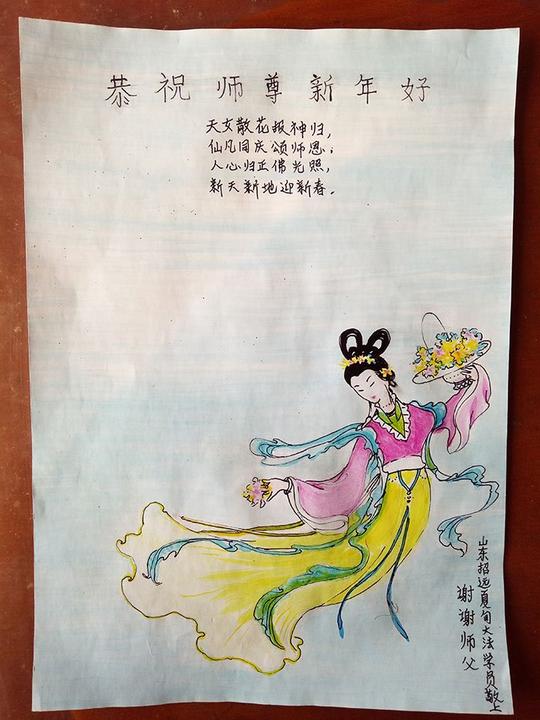 恭祝师尊新年好
天女散花报神归，
仙凡同庆颂师恩；
人心归正佛光照，
新天新地迎新春。
山东招远夏甸大法学员敬上
谢谢师父